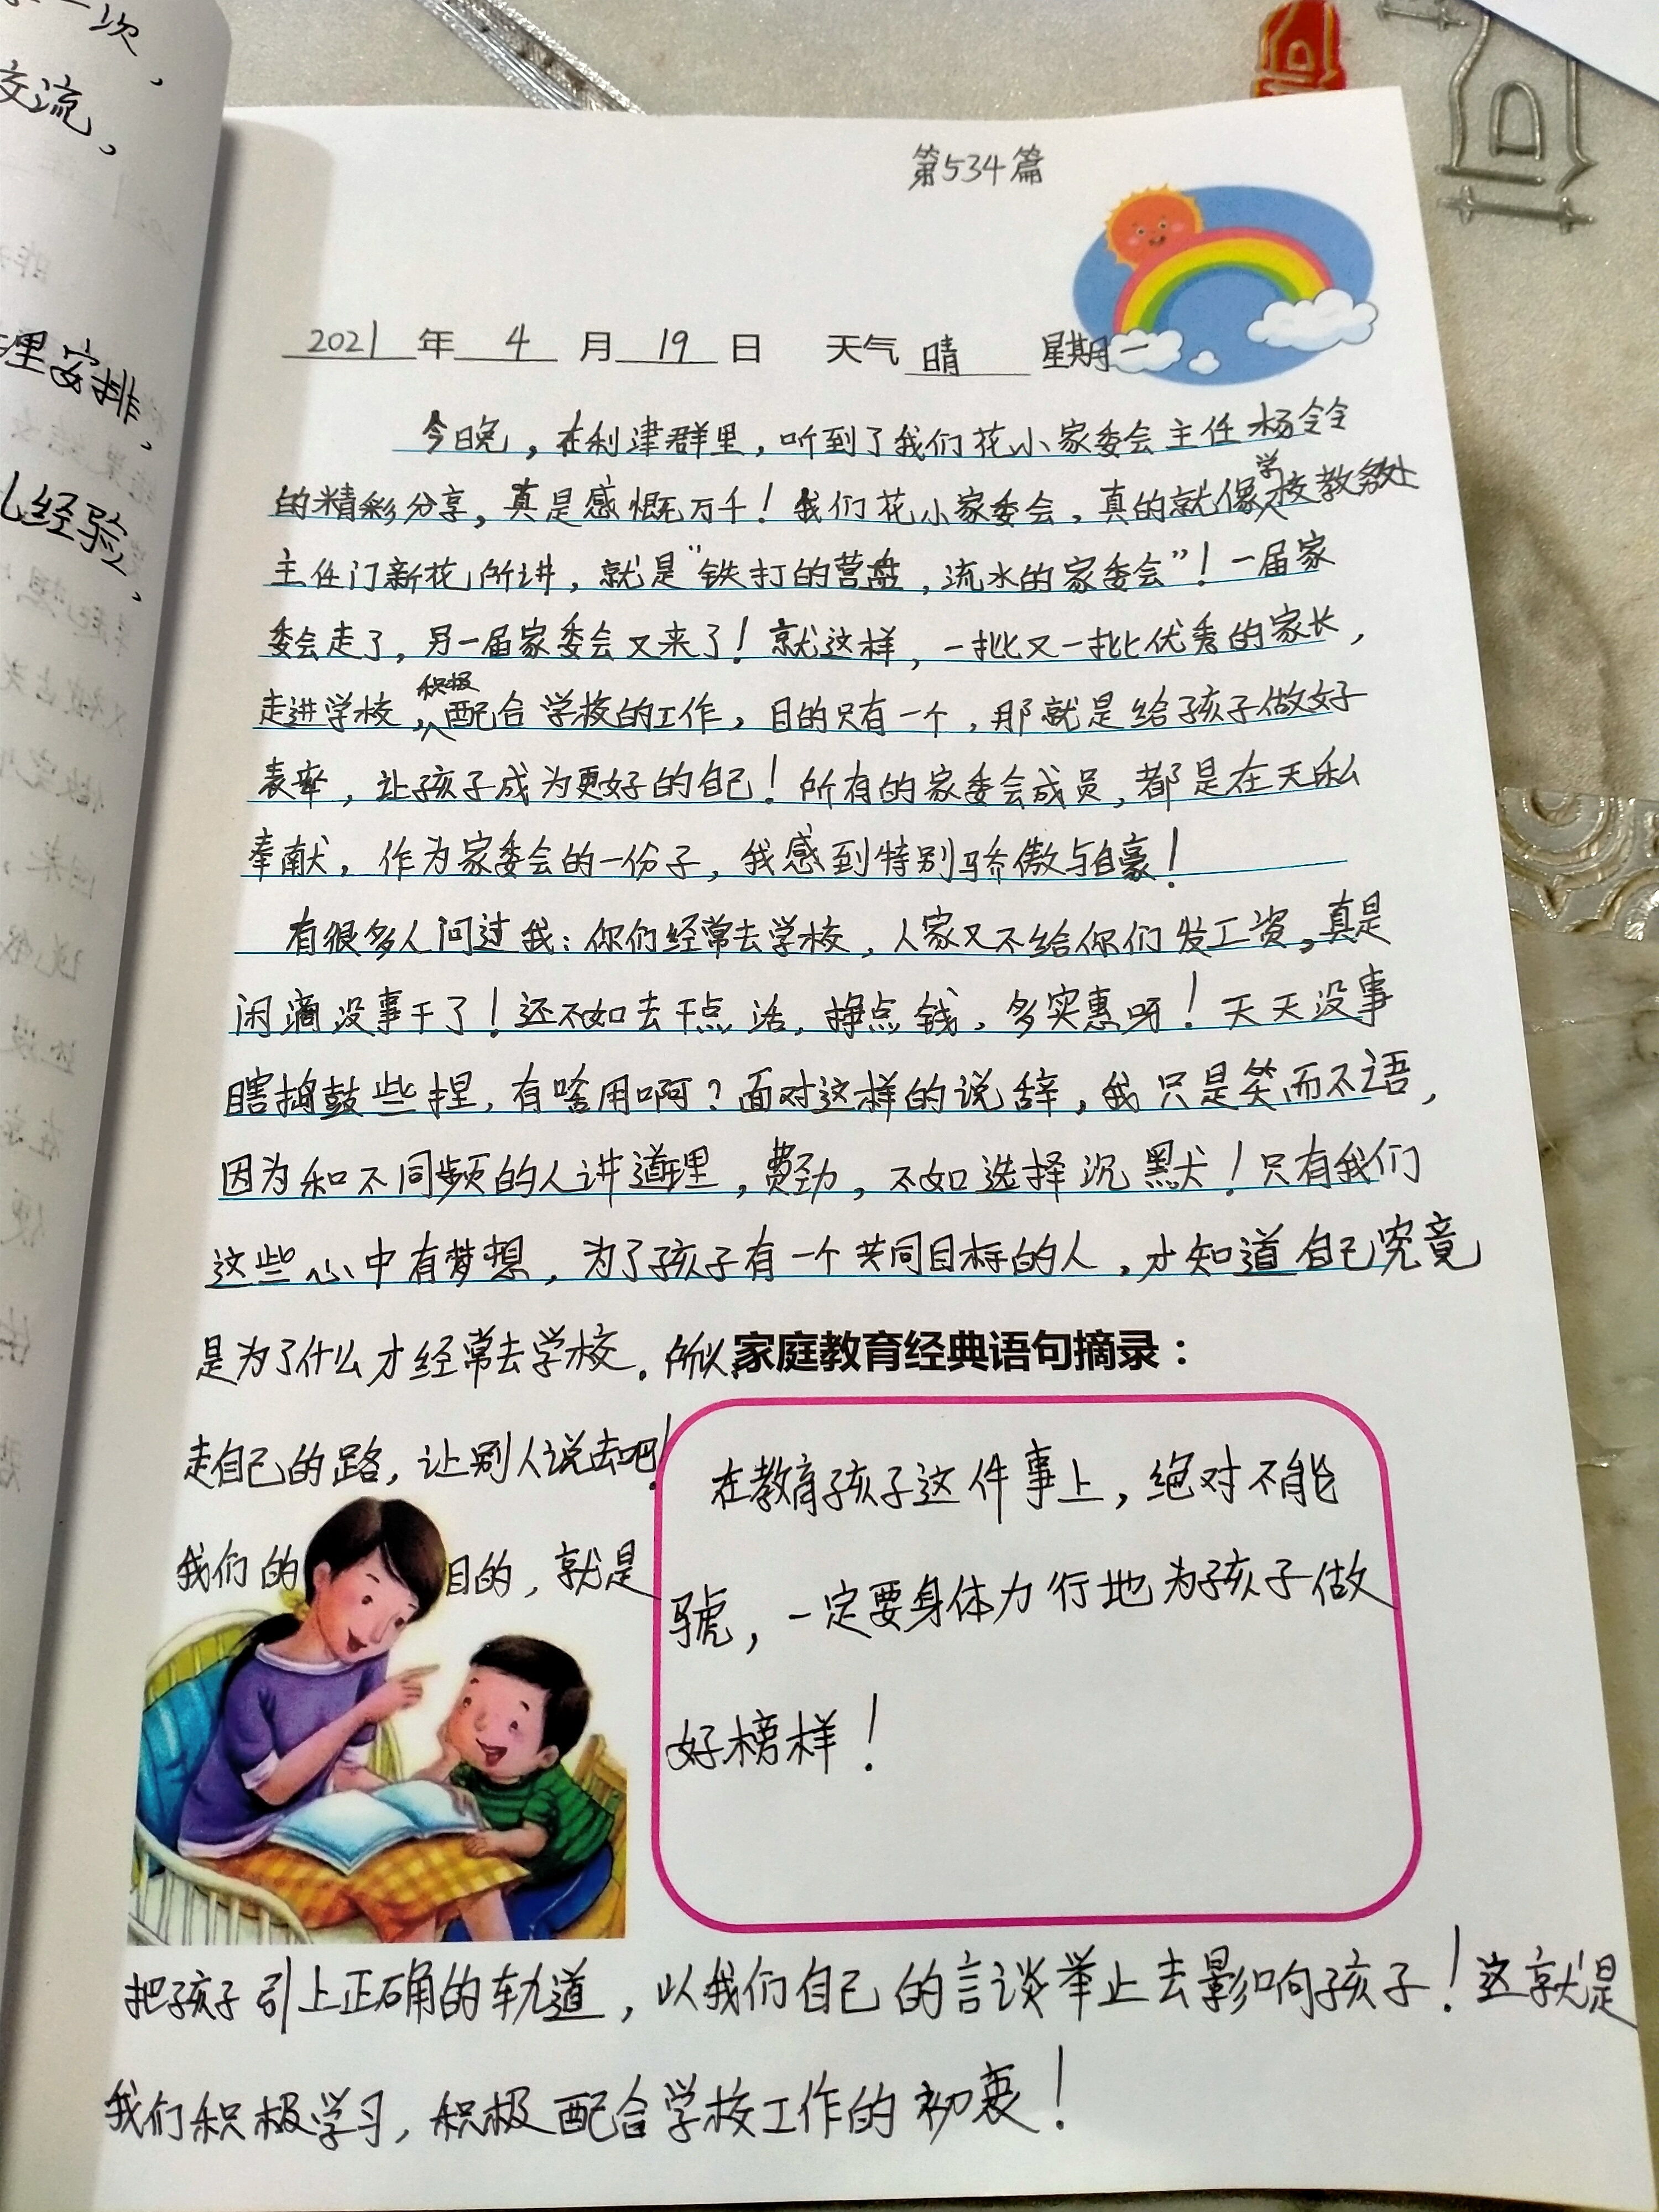 一次，
交流，
理安排，
经验，
第534篇
2021年 4 月 19 日 天气 晴 星期一
今日晚，在利津群里，听到了我们花小家委会主任杨令令
的精彩分享，真是感慨万千！我们花小家委会，真的就像学校教务处
主任门新花所讲，就是“铁打的营盘，流水的家委会”！一届家
委会走了，另一届家委会又来了！就这样，一批又一批优秀的家长，
走进学校，积极配合学校的工作，目的只有一个，那就是给孩子做好
表率，让孩子成为更好的自己！所有的家委会成员，都是在无私
奉献，作为家委会的一份子，我感到特别骄傲与自豪！
有很多人问过我：你们经常去学校，人家又不给你们发工资，真是
闲滴没事干了！还不如去干点活，挣点钱，多实惠呀！天天没事
瞎捣鼓些捏，有啥用啊？面对这样的说辞，我只是笑而不语，
因为和不同频的人讲道理，费劲，不如选择沉默！只有我们
这些心中有梦想，为了孩子有一个共同目标的人，才知道自己究竟
是为了什么才经常去学校。所以，
走自己的路，让别人说去吧！
我们的目的，就是
家庭教育经典语句摘录：
在教育孩子这件事上，绝对不能
唬，一定要身体力行地为孩子做
好榜样！
把孩子引上正确的轨道，以我们自己的言谈举止去影响孩子！这就是
我们积极学习，积极配合学校工作的初衷！